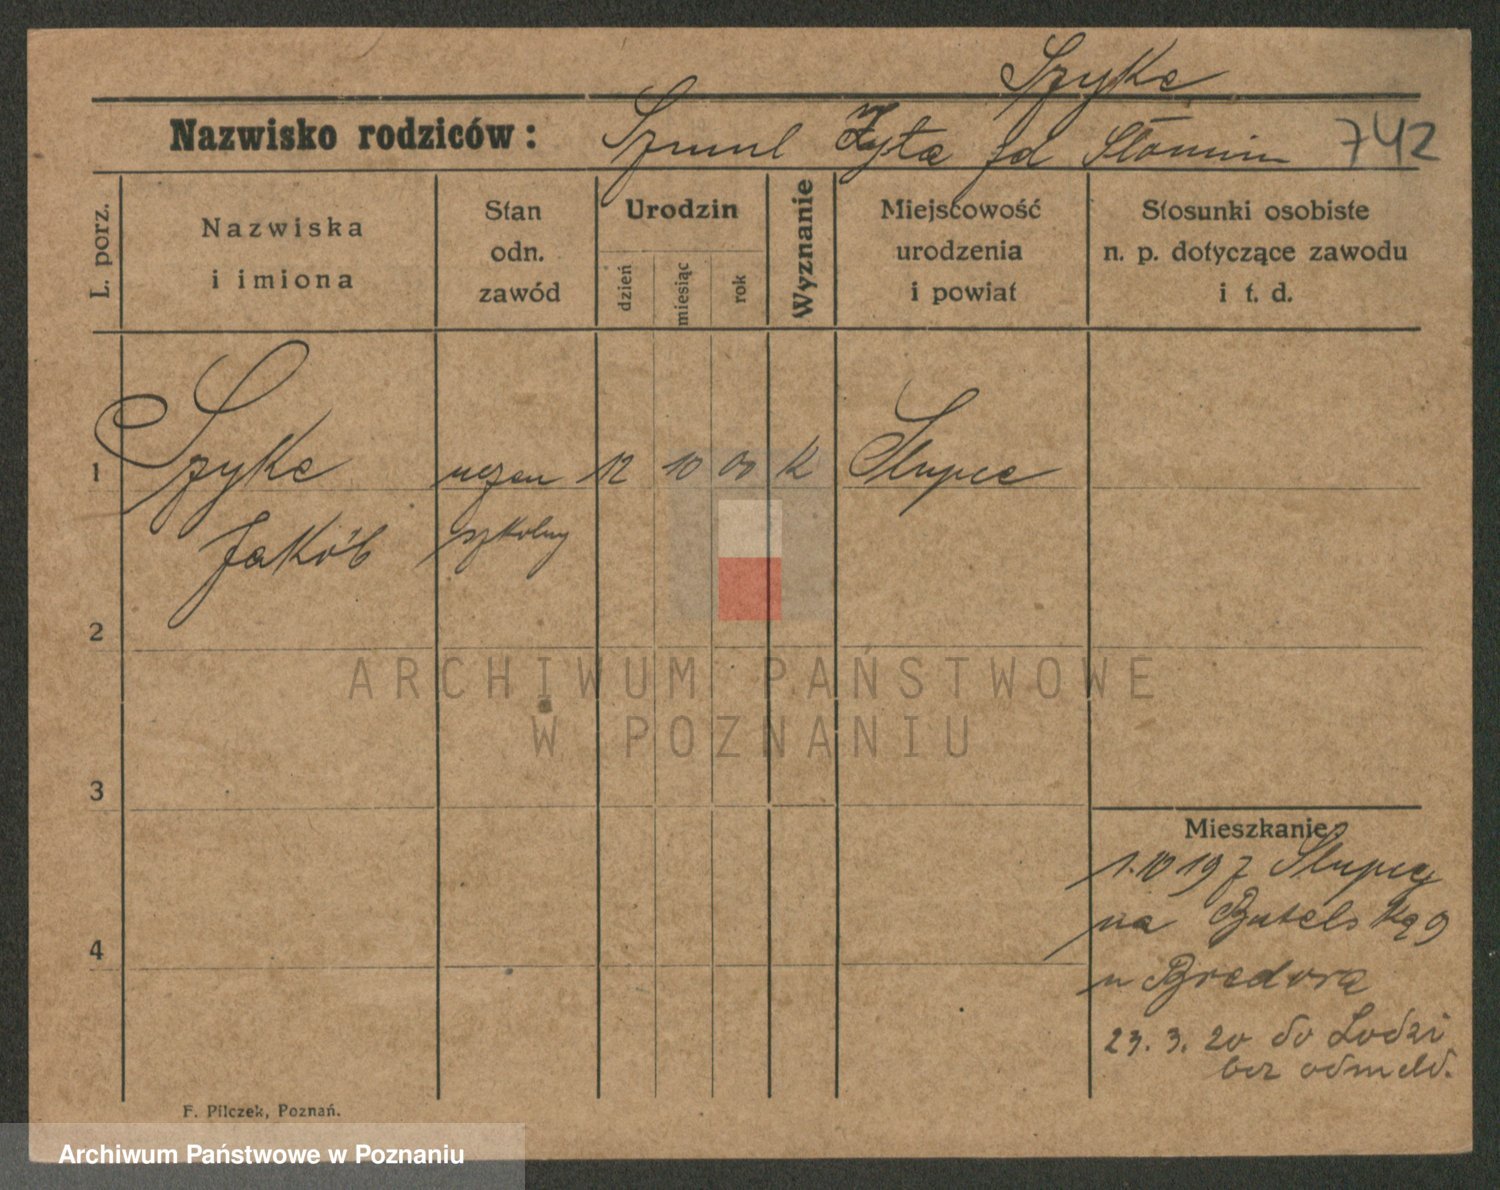 Szyke
Nazwisko rodziców: Szmul Zyta jd Słomin 742
L. porz.
Nazwiska
i imiona
Stan
odn.
zawód
Urodzin
dzień
miesiąc
rok
Wyznanie
Miejscowość
urodzenia
i powiat
Stosunki osobiste
n. p. dotyczące zawodu
i t. d.
1 Szyke uczen 12 10 00 K Slupce
Jakób szkolny
2
ARCHIWUM PAŃSTWOWE
W POZNANIU
3
Mieszkanie:
1.10 19 z Slupcy
na 9
u
4
23. 3. 20 do Lodzi
bez odmeld.
F. Pilczek, Poznań.
Archiwum Państwowe w Poznaniu